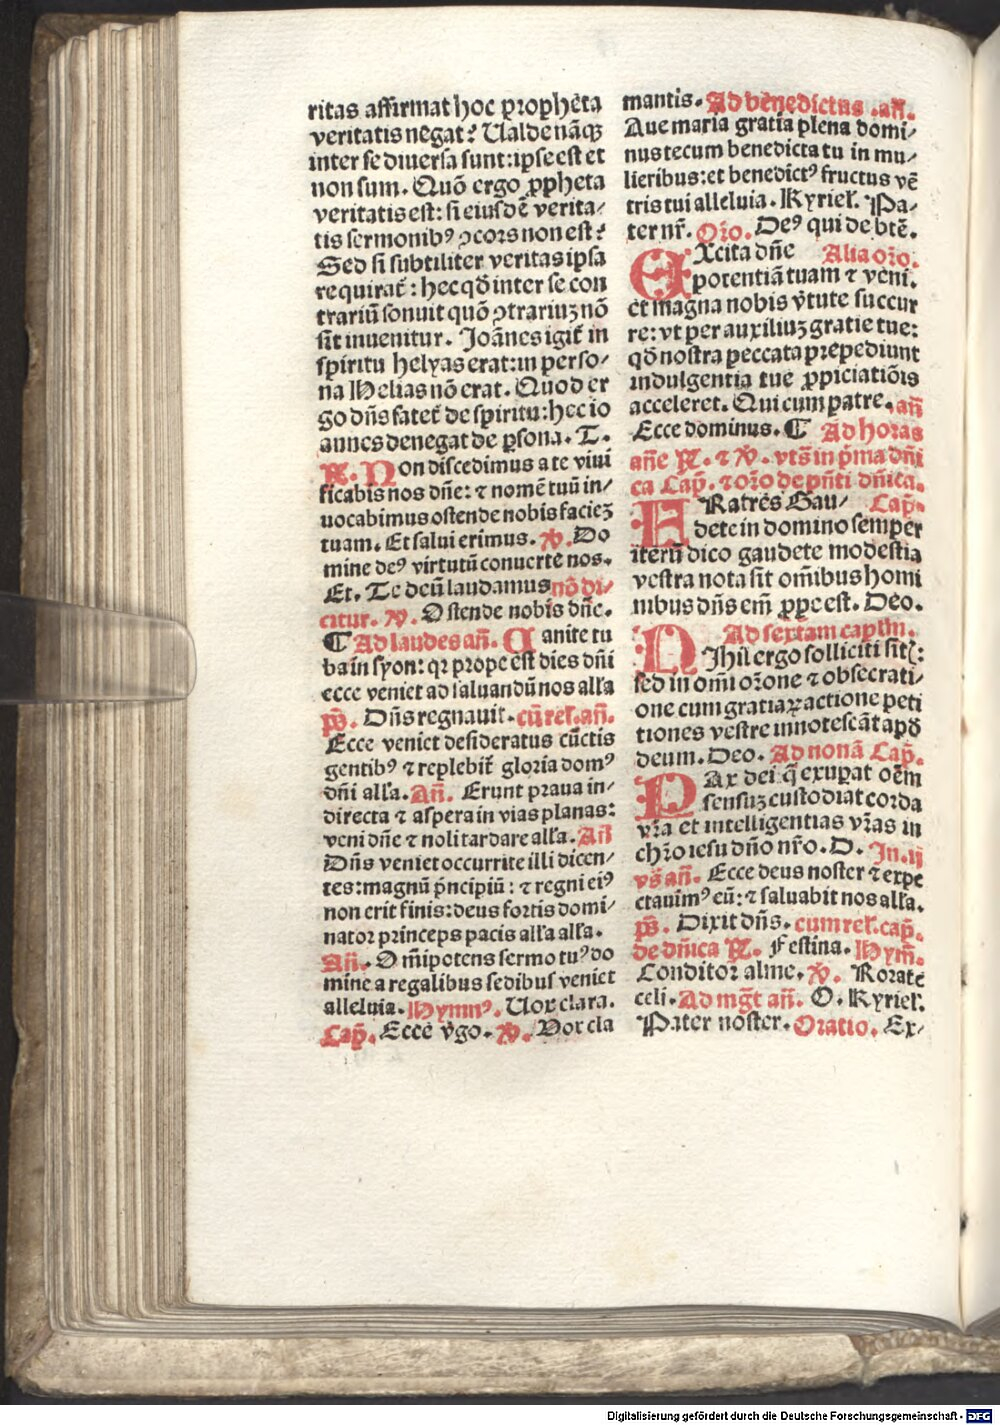 ritas affirmat hoc propheta
veritatis negat? Ualde nāqꝫ
inter se diuersa sunt: ipse est et
non sum. Quō ergo ꝓpheta
veritatis est: si eiusdē verita/
tis sermonibꝰ ꝯcors non est?
Sed si subtiliter veritas ipsa
requirat̄: hec qd̄ inter se con
trariū sonuit quō ꝯtrariuꝫ nō
sit inuenitur. Joānes igit̄ in
spiritu helyas erat: in perso/
na Helias nō erat. Quod er
go dn̄s fatet̄ de spiritu: hec io
annes denegat de ꝑsona. T.
R̄. Non discedimus a te viui
ficabis nos dn̄e: ⁊ nomē tuū in/
uocabimus ostende nobis facieꝫ
tuam. Et salui erimus. V̄. Do
mine deꝰ virtutū conuerte nos.
Et. Te deū laudamus nō di/
citur. V̄. Ostende nobis dn̄e.
¶ Ad laudes an̄. Canite tu
ba in syon: qꝛ prope est dies dn̄i
ecce veniet ad saluandū nos alľa
ps̄. Dn̄s regnauit. cū rel̄. an̄.
Ecce veniet desideratus cūctis
gentibꝰ ⁊ replebit̄ gloria domꝰ
dn̄i alľa. An̄. Erunt praua in/
directa ⁊ aspera in vias planas:
veni dn̄e ⁊ noli tardare alľa. An̄
Dn̄s veniet occurrite illi dicen/
tes: magnū pn̄cipiū: ⁊ regni eiꝰ
non erit finis: deus fortis domi/
nator princeps pacis alľa alľa.
An̄. Om̄ipotens sermo tuꝰ do
mine a regalibus sedibus veniet
alleluia. Hymnꝰ. Uox clara.
Cap̄. Ecce v̄go. V̄. Vox cla
mantis. Ad benedictus .an̄.
Aue maria gratia plena domi/
nus tecum benedicta tu in mu/
lieribus: et benedictꝰ fructus vē
tris tui alleluia. Kyriel̄. Pa/
ter nr̄. Oro. Deꝰ qui de btē.
EXcita dn̄e Alia oro.
potentiā tuam ⁊ veni.
et magna nobis v̄tute succur
re: vt per auxiliuꝫ gratie tue:
qd̄ nostra peccata prepediunt
indulgentia tue ꝓpiciatiōis
acceleret. Qui cum patre. an̄
Ecce dominus. ¶ Ad horas
an̄e R̄. ⁊ V̄. vts̄ in p̄ma dn̄i
ca Cap̄. ⁊ oro de pn̄ti dn̄ica.
FRatres Gau/ Cap̄.
dete in domino semper
iterū dico gaudete modestia
vestra nota sit om̄ibus homi
nibus dn̄s em̄ ꝓpe est. Deo.
Ad sextam captlm.
NJhil ergo solliciti sitꝭ:
sed in om̄i orōne ⁊ obsecrati/
one cum gratiaꝝ actione peti
tiones vestre innotescāt apd̄
deum. Deo. Ad nonā Cap̄.
PAx dei q̄ exuꝑat oēm
sensuꝫ custodiat corda
vr̄a et intelligentias vr̄as in
chro iesu dn̄o nr̄o. D. Jn. ij
vs̄ an̄. Ecce deus noster ⁊ expe
ctauimꝰ eū: ⁊ saluabit nos alľa.
ps̄. Dixit dn̄s. cum rel̄. cap̄.
de dn̄ica R̄. Festina. Hym̄.
Conditor alme. V̄. Rorate
celi. Ad mgt̄ an̄. O. Kyriel̄.
Pater noster. Oratio. Ex/
Digitalisierung gefördert durch die Deutsche Forschungsgemeinschaft - DFG